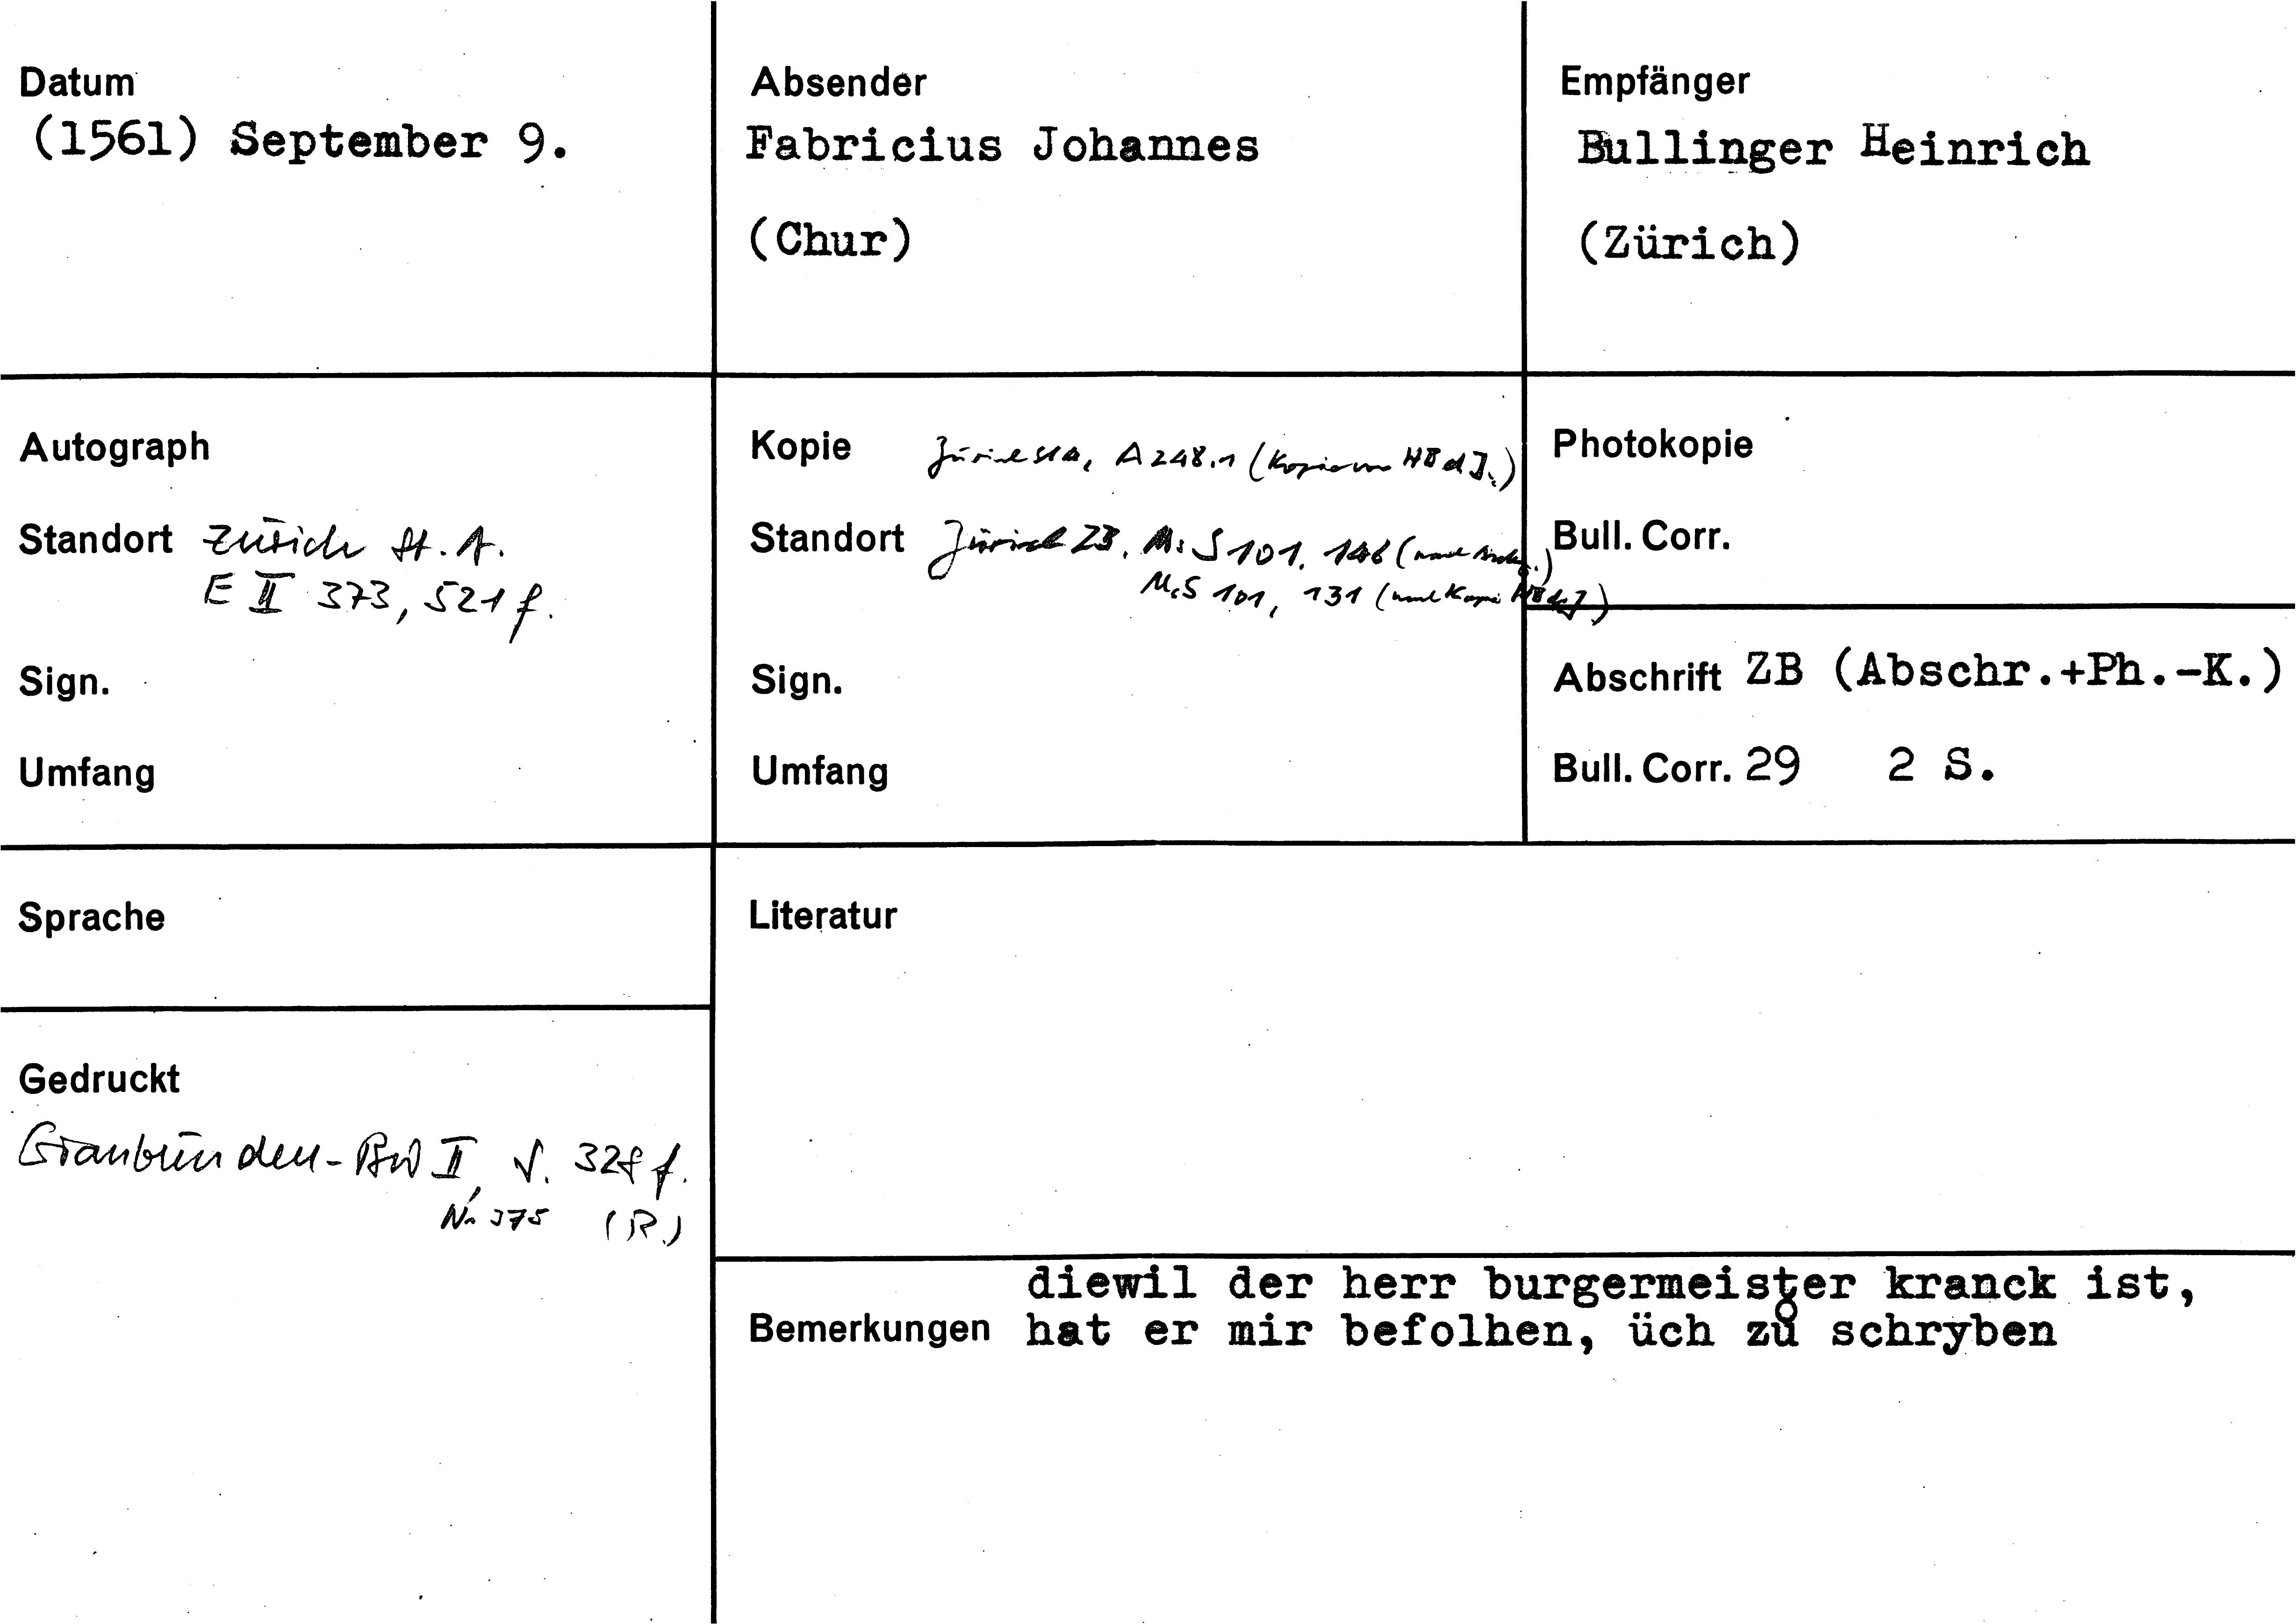 Datum
(1561) September 9.
Absender
Fabricius Johannes
(Chur)
Empfänger
Bullinger Heinrich
(Zürich)
Autograph
Standort Zürich St. A.
E II 373, 521 f.
Sign.
Umfang
Kopie Zürich StA, A 248.1 (Kopie von HB d J.)
Standort Zürich ZB, Ms S 101, 146 (nach
Ms S 101, 131 (nach Kopie HB d J)
Sign.
Umfang
Photokopie
Bull. Corr.
Abschrift ZB (Abschr.+Ph.-K.)
Bull. Corr. 29 2 S.
Sprache
Gedruckt
Graubünden-BW II, S. 328 f.
Nr 375 (R.)
Literatur
diewil der herr burgermeister kranck ist,
Bemerkungen hat er mir befolhen, üch zů schryben